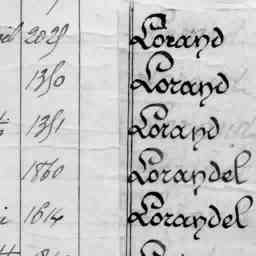 2029 Lorand
1350 Lorand
1351 Lorand
1860 Lorandel
1614 Lorandel